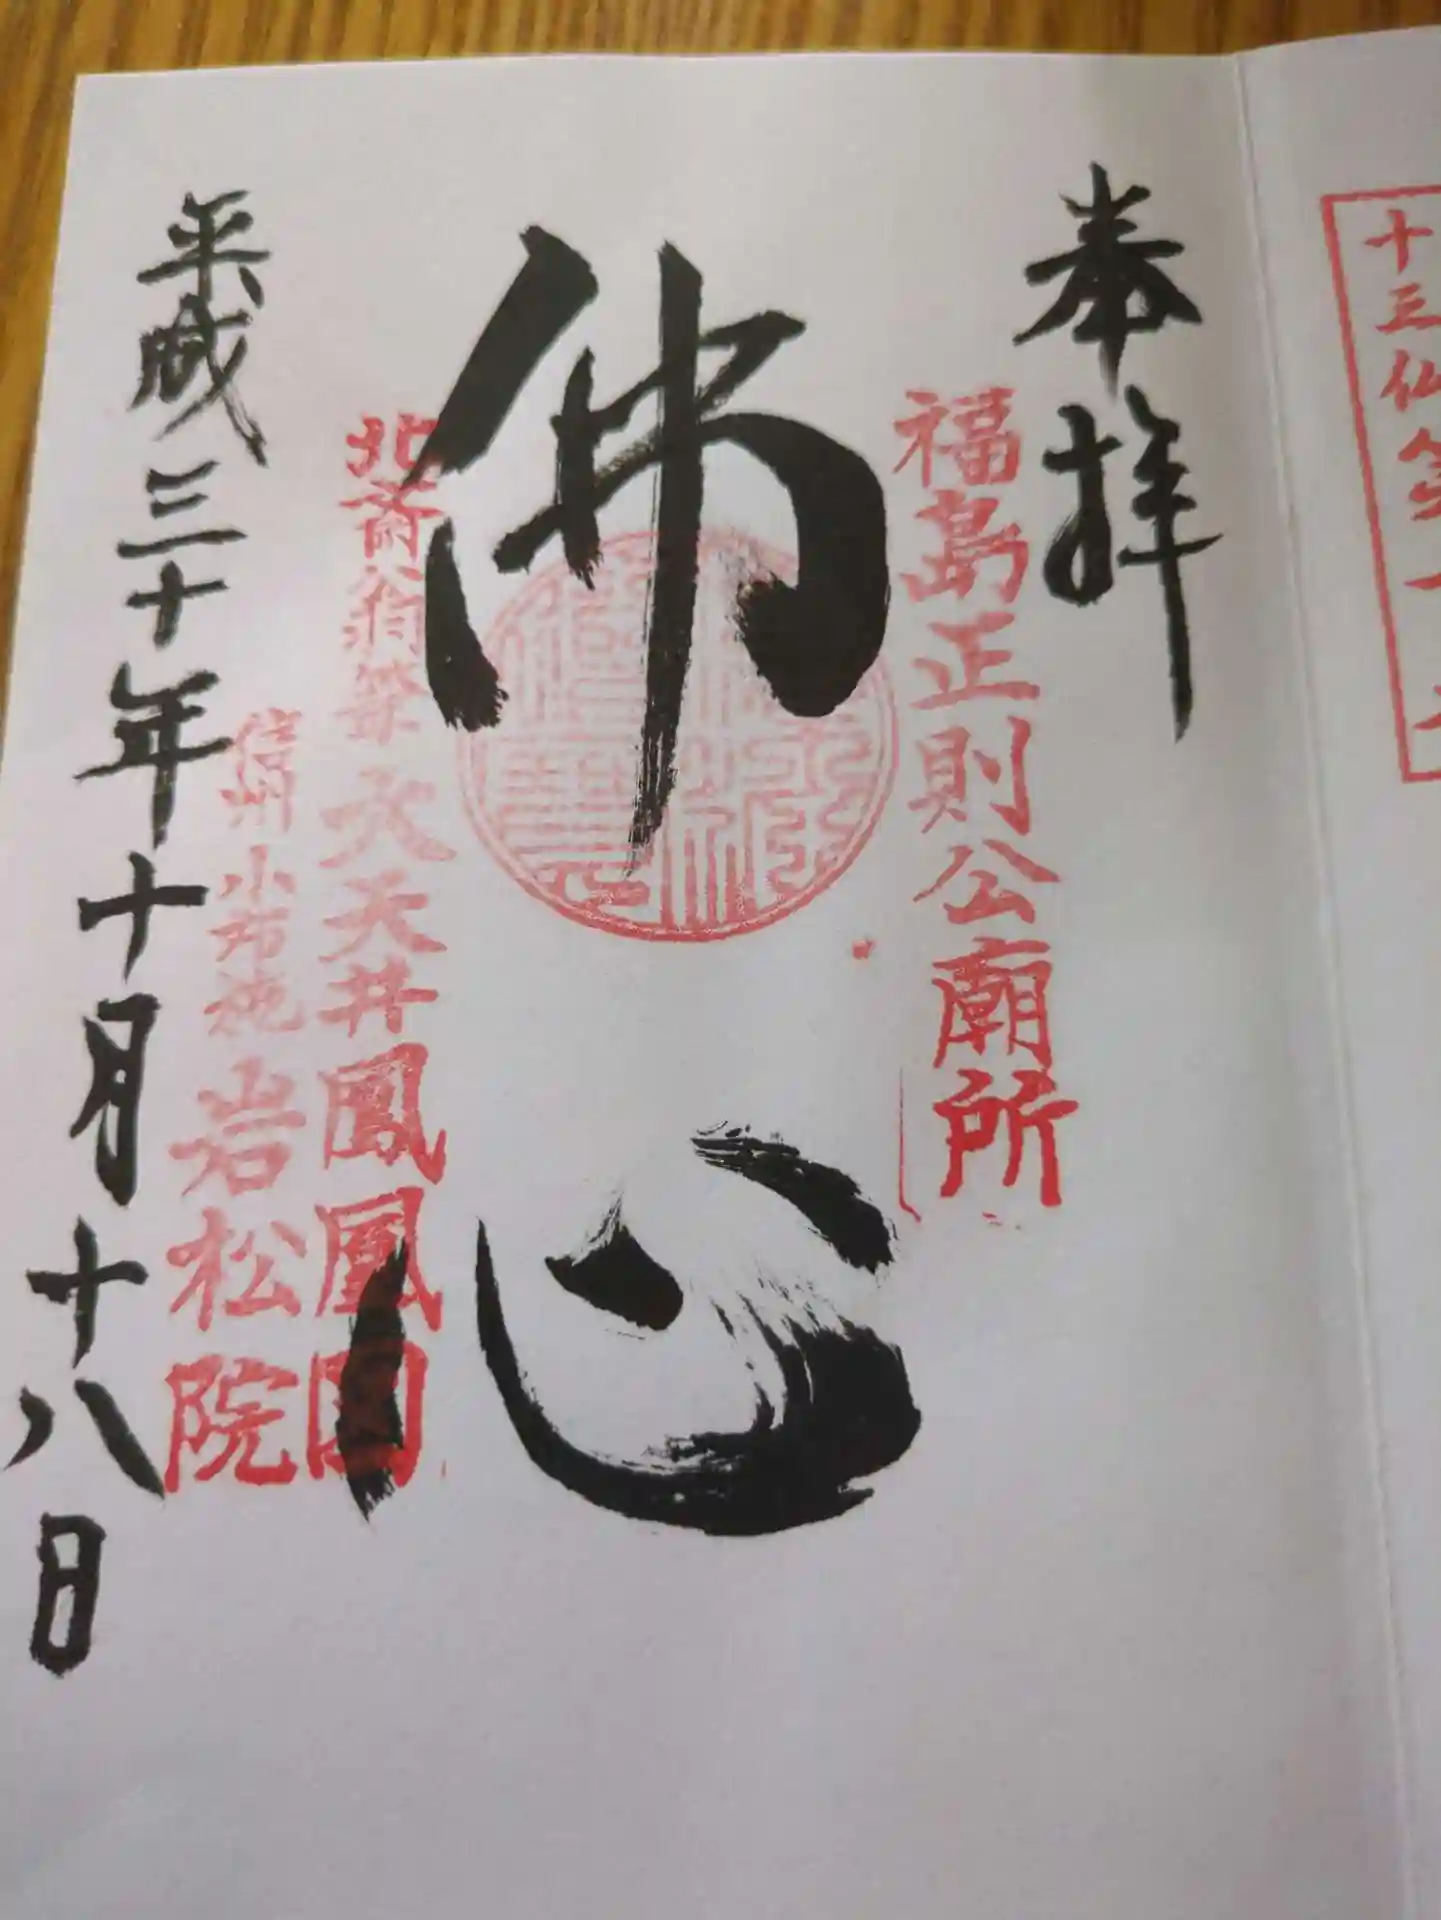 十三仏第一
奉拝
福島正則公廟所
佛心
北斎翁筆 大天井鳳凰図
信州 小布施 岩松院
平成三十年十月十八日